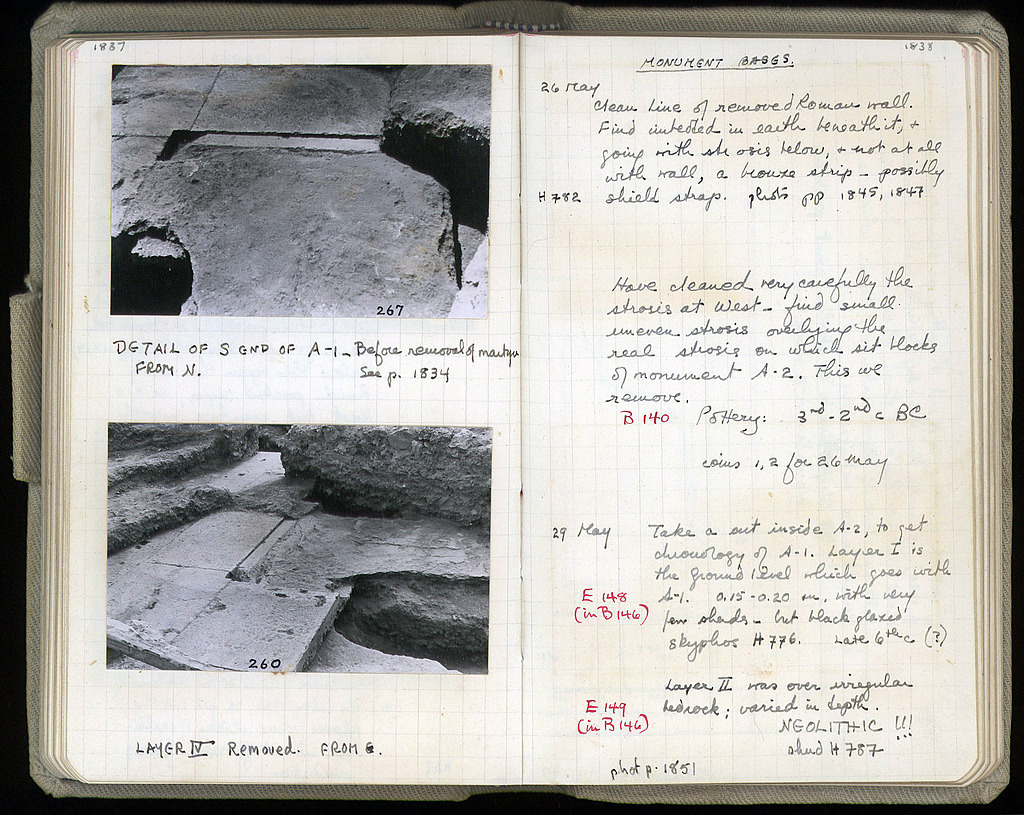 1837
267
DETAIL OF S END OF A-1 - Before removal of martyr
FROM N. See p. 1834
260
LAYER IV Removed. FROM
1838
MONUMENT BASES.
26 May
Clean line of removed Roman wall.
Find imbedded in earth beneath it, +
going with strosis below, + not at all
with wall, a bronze strip - possibly
H 782 shield strap. photos pp 1845, 1847
Have cleaned very carefully the
strosis at West - find small
uneven strosis overlying the
real strosis on which sit blocks
of monument A-2. This we
remove.
B 140 Pottery: 3rd - 2nd c BC
coins 1, 2 for 26 May
29 May Take a cut inside A-2, to get
chronology of A-1. Layer I is
the ground level which goes with
E 148 A-1. 0.15-0.20 m. with very
(in B 146) few sherds - but black glazed
skyphos H 776. Late 6th c (?)
Layer II was over irregular
E 149 bedrock; varied in depth.
(in B 146) NEOLITHIC !!!
sherd H 787
phot p. 1851